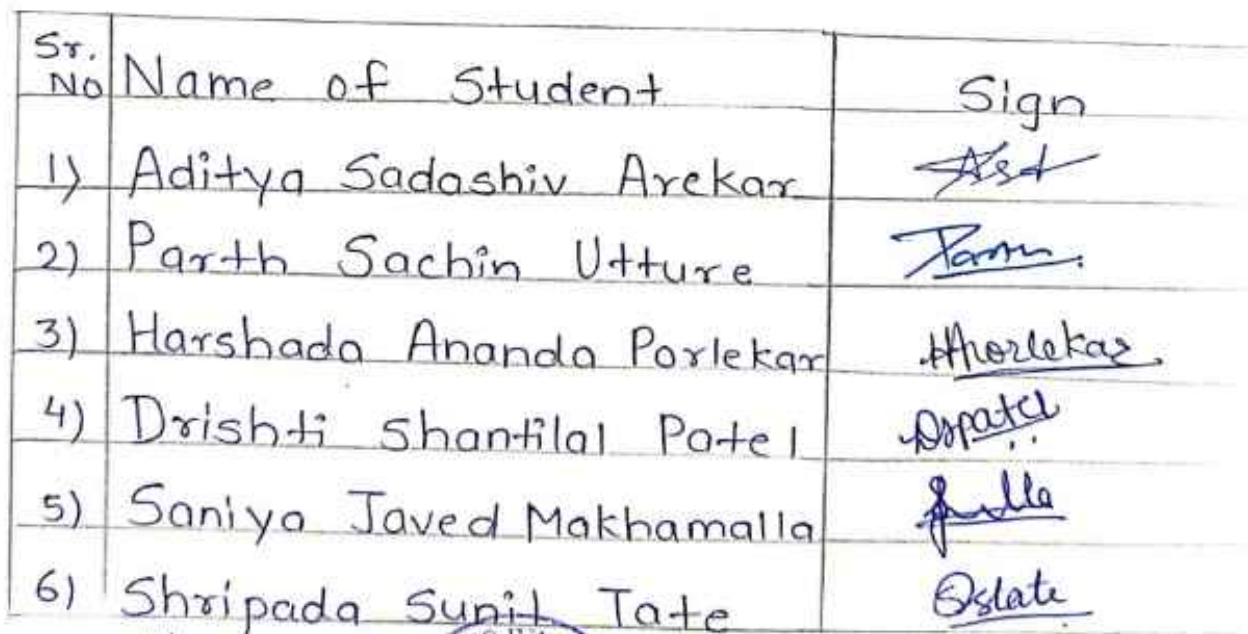 Sr. No Name of Student Sign
1) Aditya Sadashiv Arekar
2) Parth Sachin Utture
3) Harshada Ananda Porlekar HAPorlekar
4) Drishti Shantilal Patel Dspatel
5) Saniya Javed Makhamalla
6) Shripada Sunil Tate